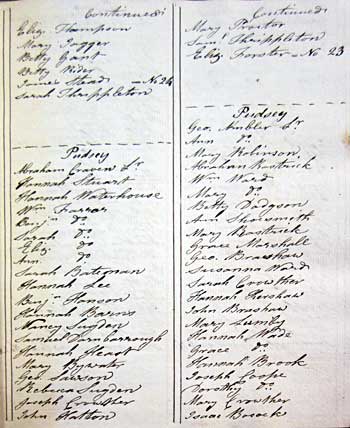 Continued
Eliz. Thompson
Mary Jagger
Betty Gant
Betty Rider
James Stead — No 24
Sarah Thrippleton
Pudsey
Abraham Craven Lr
Hannah Stuart
Hannah Waterhouse
Wm Farrar
Benjn do
Sarah do
Eliz. do
Ann do
Sarah Bateman
Hannah Lee
Benjn Hanson
Hannah Barns
Nancy Sugden
Samuel Farnbarrough
Hannah Heast
Mary Bywater
Geo. Lawson
Rebecca Sugden
Joseph Crowther
John Hatton
Continued
Mary Procter
Saml Thrippleton
Eliz. Forster — No 23
Pudsey
Geo. Ambler Lr
Ann do
Mary Robinson
Abraham Bastwick
Wm Ward
Mary do
Betty Dodgson
Ann Shoesmith
Mary Bastwick
Grace Marshall
Geo. Brashaw
Susanna Wade
Sarah Crowther
Hannah Kershaw
John Brashaw
Mary Lumby
Hannah Wade
Grace do
Hannah Brook
Joseph Coope
Dorothy do
Mary Crowther
Isaac Bocock